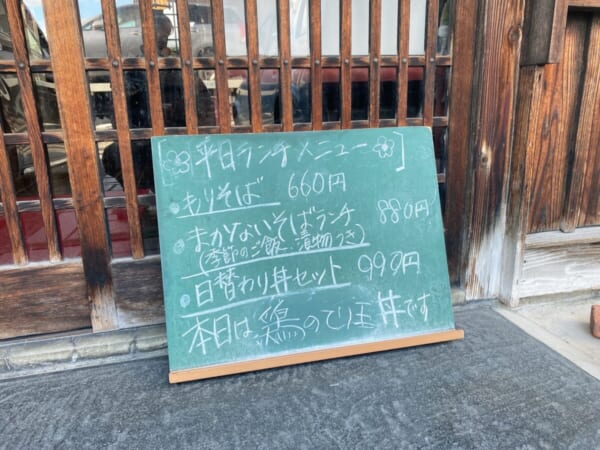 平日ランチメニュー
・もりそば 660円
・まかないそばランチ 880円
(季節のご飯、漬物つき)
・日替わり丼セット 990円
本日は鶏のてり玉丼です